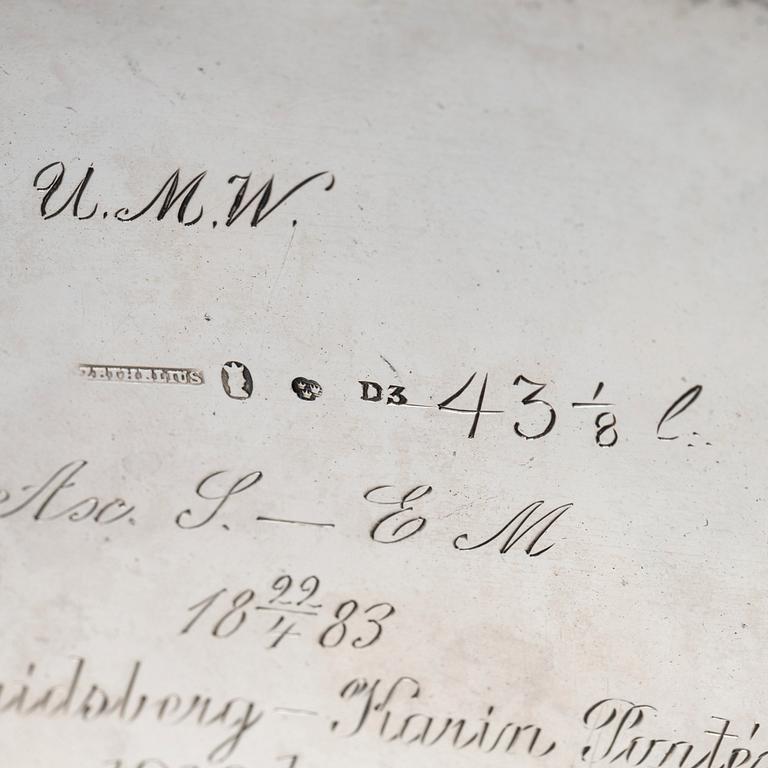 U.M.W.
ZETHELIUS D3 43 1/8 l.
Axx. S. — E M
18 22/4 83
idsberg – Karin Ponté